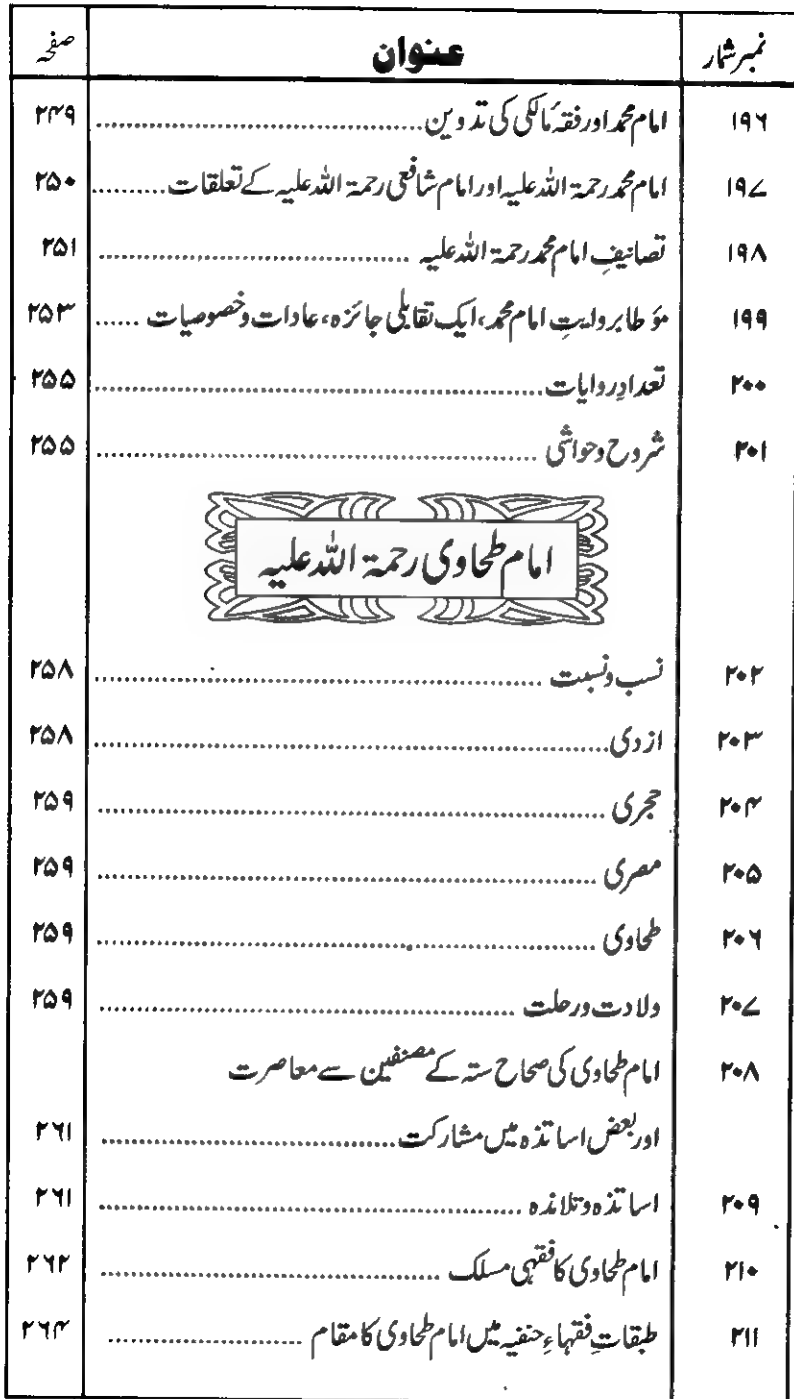 نمبر شمار عنوان صفحہ
۱۹۶ امام محمد اور فقہ مالکی کی تدوین ........ ۲۴۹
۱۹۷ امام محمد رحمۃ اللہ علیہ اور امام شافعی رحمۃ اللہ علیہ کے تعلقات ........ ۲۵۰
۱۹۸ تصانیفِ امام محمد رحمۃ اللہ علیہ ........ ۲۵۱
۱۹۹ مؤطا بروایتِ امام محمد، ایک تقابلی جائزہ، عادات وخصوصیات ...... ۲۵۳
۲۰۰ تعدادِ روایات ........ ۲۵۵
۲۰۱ شروح وحواشی ........ ۲۵۵
امام طحاوی رحمۃ اللہ علیہ
۲۰۲ نسب ونسبت ........ ۲۵۸
۲۰۳ ازدی ........ ۲۵۸
۲۰۴ حجری ........ ۲۵۹
۲۰۵ مصری ........ ۲۵۹
۲۰۶ طحاوی ........ ۲۵۹
۲۰۷ ولادت ورحلت ........ ۲۵۹
۲۰۸ امام طحاوی کی صحاح ستہ کے مصنفین سے معاصرت
اور بعض اساتذہ میں مشارکت ........ ۲۶۱
۲۰۹ اساتذہ وتلامذہ ........ ۲۶۱
۲۱۰ امام طحاوی کا فقہی مسلک ........ ۲۶۲
۲۱۱ طبقاتِ فقہاءِ حنفیہ میں امام طحاوی کا مقام ........ ۲۶۴